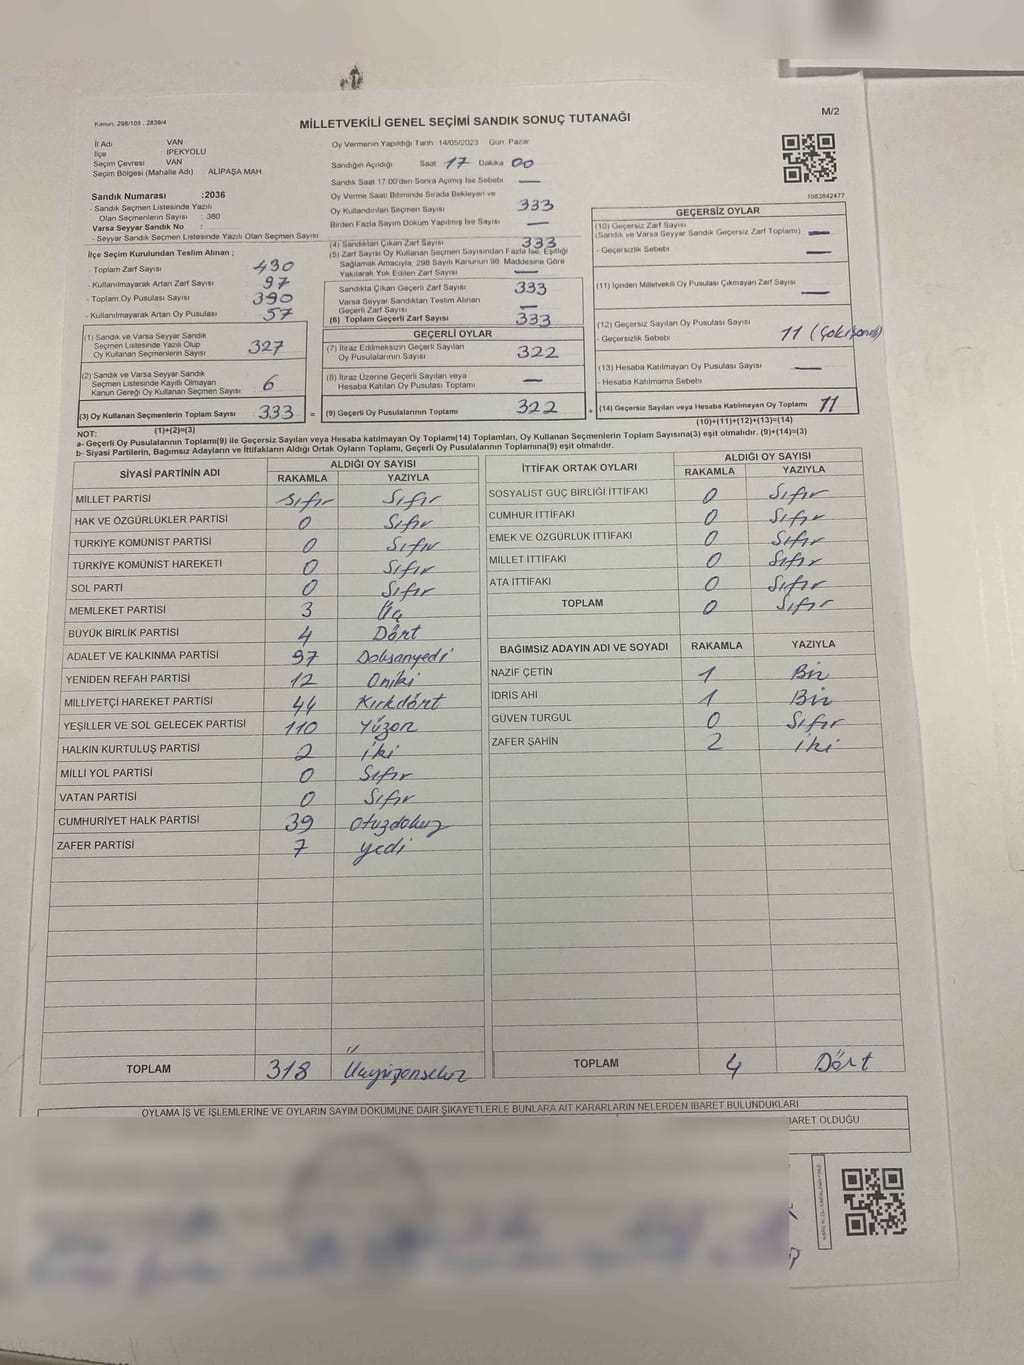 Kanun, 298/105 , 2839/4
M/2
MİLLETVEKİLİ GENEL SEÇİMİ SANDIK SONUÇ TUTANAĞI
İl Adı : VAN
İlçe : İPEKYOLU
Seçim Çevresi : VAN
Seçim Bölgesi (Mahalle Adı) : ALİPAŞA MAH.
Sandık Numarası :2036
- Sandık Seçmen Listesinde Yazılı
Olan Seçmenlerin Sayısı : 380
Varsa Seyyar Sandık No :
- Seyyar Sandık Seçmen Listesinde Yazılı Olan Seçmen Sayısı
İlçe Seçim Kurulundan Teslim Alınan ;
- Toplam Zarf Sayısı 430
- Kullanılmayarak Artan Zarf Sayısı 97
- Toplam Oy Pusulası Sayısı 390
- Kullanılmayarak Artan Oy Pusulası 57
(1) Sandık ve Varsa Seyyar Sandık
Seçmen Listesinde Yazılı Olup
Oy Kullanan Seçmenlerin Sayısı 327
(2) Sandık ve Varsa Seyyar Sandık
Seçmen Listesinde Kayıtlı Olmayan
Kanun Gereği Oy Kullanan Seçmen Sayısı 6
(3) Oy Kullanan Seçmenlerin Toplam Sayısı 333 =
(1)+(2)=(3)
Oy Vermenin Yapıldığı Tarih 14/05/2023 Gün Pazar
Sandığın Açıldığı Saat 17 Dakika 00
Sandık Saat 17:00'den Sonra Açımış İse Sebebi —
Oy Verme Saati Bitiminde Sırada Bekleyen ve
Oy Kullandırılan Seçmen Sayısı 333
Birden Fazla Sayım Döküm Yapılmış İse Sayısı —
(4) Sandıktan Çıkan Zarf Sayısı 333
(5) Zarf Sayısı Oy Kullanan Seçmen Sayısından Fazla İse, Eşitliği
Sağlamak Amacıyla, 298 Sayılı Kanunun 98. Maddesine Göre
Yakılarak Yok Edilen Zarf Sayısı —
Sandıkta Çıkan Geçerli Zarf Sayısı 333
Varsa Seyyar Sandıktan Teslim Alınan
Geçerli Zarf Sayısı —
(6) Toplam Geçerli Zarf Sayısı 333
GEÇERLİ OYLAR
(7) İtiraz Edilmeksizin Geçerli Sayılan
Oy Pusulalarının Sayısı 322
(8) İtiraz Üzerine Geçerli Sayılan veya
Hesaba Katılan Oy Pusulası Toplamı —
(9) Geçerli Oy Pusulalarının Toplamı 322 +
1083842477
GEÇERSİZ OYLAR
(10) Geçersiz Zarf Sayısı
(Sandık ve Varsa Seyyar Sandık Geçersiz Zarf Toplamı) —
- Geçersizlik Sebebi —
(11) İçinden Milletvekili Oy Pusulası Çıkmayan Zarf Sayısı —
(12) Geçersiz Sayılan Oy Pusulası Sayısı
- Geçersizlik Sebebi 11
(13) Hesaba Katılmayan Oy Pusulası Sayısı —
- Hesaba Katılmama Sebebi
(14) Geçersiz Sayılan veya Hesaba Katılmayan Oy Toplamı 11
(10)+(11)+(12)+(13)=(14)
NOT:
a- Geçerli Oy Pusulalarının Toplamı(9) ile Geçersiz Sayılan veya Hesaba katılmayan Oy Toplamı(14) Toplamları, Oy Kullanan Seçmenlerin Toplam Sayısına(3) eşit olmalıdır. (9)+(14)=(3)
b- Siyasi Partilerin, Bağımsız Adayların ve İttifakların Aldığı Ortak Oyların Toplamı, Geçerli Oy Pusulalarının Toplamına(9) eşit olmalıdır.
SİYASİ PARTİNİN ADI ALDIĞI OY SAYISI
RAKAMLA YAZIYLA
MİLLET PARTİSİ sıfır Sıfır
HAK VE ÖZGÜRLÜKLER PARTİSİ 0 Sıfır
TÜRKİYE KOMÜNİST PARTİSİ 0 Sıfır
TÜRKİYE KOMÜNİST HAREKETİ 0 Sıfır
SOL PARTİ 0 Sıfır
MEMLEKET PARTİSİ 3 Üç
BÜYÜK BİRLİK PARTİSİ 4 Dört
ADALET VE KALKINMA PARTİSİ 97 Doksanyedi
YENİDEN REFAH PARTİSİ 12 Oniki
MİLLİYETÇİ HAREKET PARTİSİ 44 Kırkdört
YEŞİLLER VE SOL GELECEK PARTİSİ 110 Yüzon
HALKIN KURTULUŞ PARTİSİ 2 iki
MİLLİ YOL PARTİSİ 0 Sıfır
VATAN PARTİSİ 0 Sıfır
CUMHURİYET HALK PARTİSİ 39 Otuzdokuz
ZAFER PARTİSİ 7 yedi
TOPLAM 318 Üçyüzonsekiz
İTTİFAK ORTAK OYLARI ALDIĞI OY SAYISI
RAKAMLA YAZIYLA
SOSYALİST GÜÇ BİRLİĞİ İTTİFAKI 0 Sıfır
CUMHUR İTTİFAKI 0 Sıfır
EMEK VE ÖZGÜRLÜK İTTİFAKI 0 Sıfır
MİLLET İTTİFAKI 0 Sıfır
ATA İTTİFAKI 0 Sıfır
TOPLAM 0 Sıfır
BAĞIMSIZ ADAYIN ADI VE SOYADI RAKAMLA YAZIYLA
NAZİF ÇETİN 1 Bir
İDRİS AHİ 1 Bir
GÜVEN TURGUL 0 Sıfır
ZAFER ŞAHİN 2 iki
TOPLAM 4 Dört
OYLAMA İŞ VE İŞLEMLERİNE VE OYLARIN SAYIM DÖKÜMÜNE DAİR ŞİKAYETLERLE BUNLARA AİT KARARLARIN NELERDEN İBARET BULUNDUKLARI
İBARET OLDUĞU